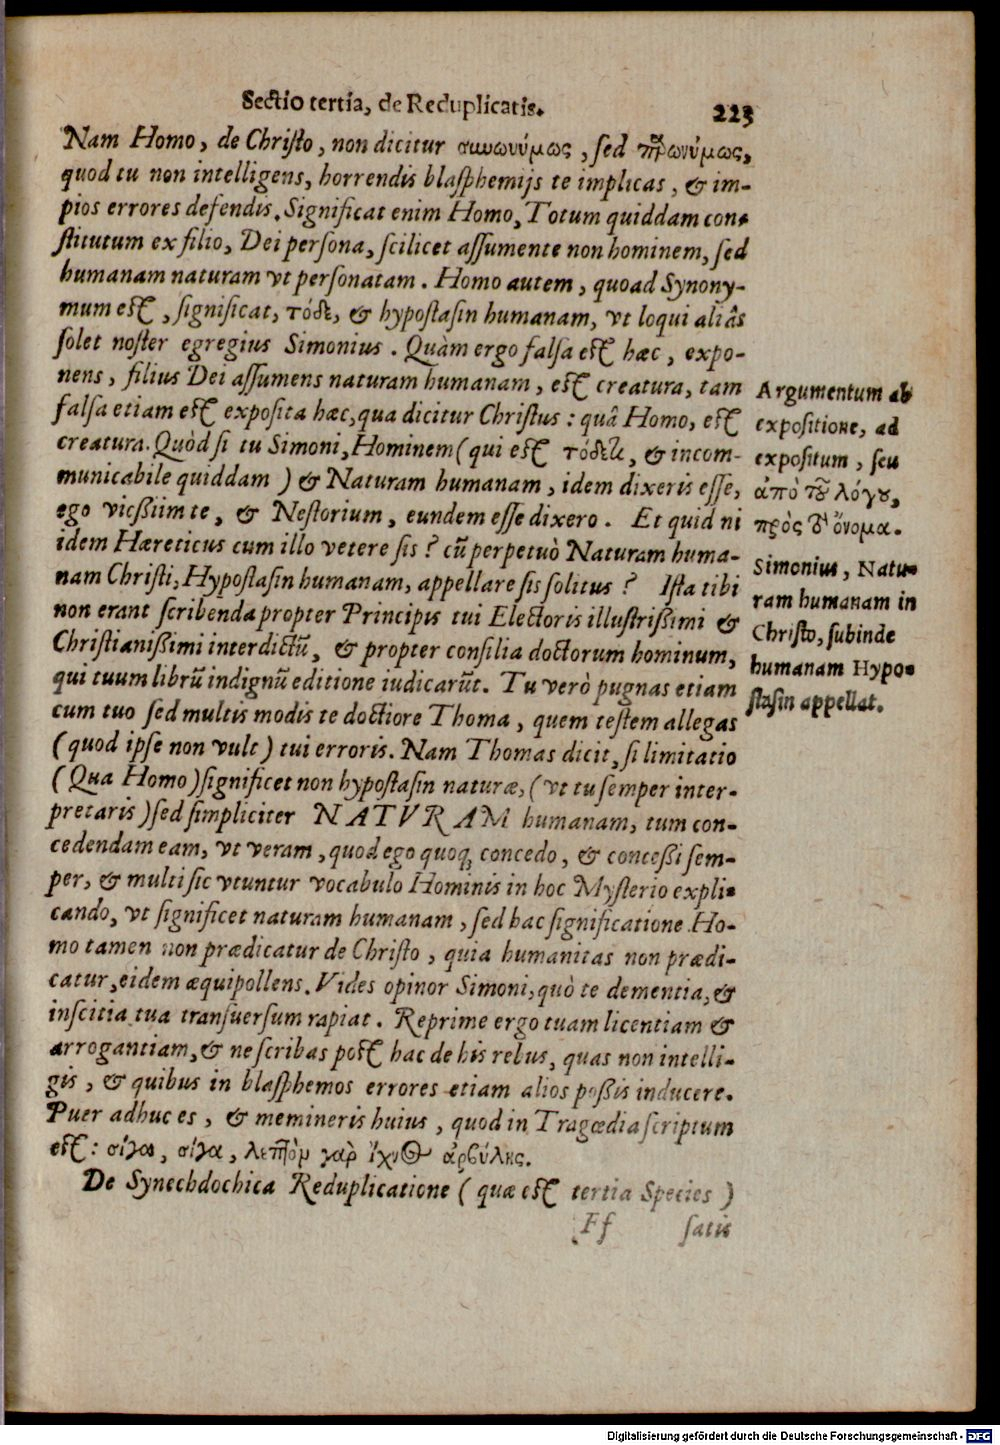 Sectio tertia, de Reduplicatis. 223
Nam Homo, de Christo, non dicitur συνωνύμως, sed παρωνύμως,
quod tu non intelligens, horrendis blasphemijs te implicas, & im-
pios errores defendis. Significat enim Homo, Totum quiddam con-
stitutum ex filio, Dei persona, scilicet assumente non hominem, sed
humanam naturam vt personatam. Homo autem, quoad Synony-
mum est, significat, τόδε, & hypostasin humanam, vt loqui aliâs
solet noster egregius Simonius. Quàm ergo falsa est hæc, expo-
nens, filius Dei assumens naturam humanam, est creatura, tam
falsa etiam est exposita hæc, qua dicitur Christus: quâ Homo, est
creatura. Quòd si tu Simoni, Hominem (qui est τόδε τι, & incom-
municabile quiddam) & Naturam humanam, idem dixeris esse,
ego vicßiim te, & Nestorium, eundem esse dixero. Et quid ni
idem Hæreticus cum illo vetere sis? cũ perpetuò Naturam huma-
nam Christi, Hypostasin humanam, appellare sis solitus? Ista tibi
non erant scribenda propter Principis tui Electoris illustrißimi &
Christianißimi interdictũ, & propter consilia doctorum hominum,
qui tuum librũ indignũ editione iudicarũt. Tu verò pugnas etiam
cum tuo sed multis modis te doctiore Thoma, quem testem allegas
(quod ipse non vult) tui erroris. Nam Thomas dicit, si limitatio
(Qua Homo) significet non hypostasin naturæ, (vt tu semper inter-
pretaris) sed simpliciter NATVRAM humanam, tum con-
cedendam eam, vt veram, quod ego quoq; concedo, & conceßi sem-
per, & multi sic vtuntur vocabulo Hominis in hoc Mysterio expli-
cando, vt significet naturam humanam, sed hac significatione Ho-
mo tamen non prædicatur de Christo, quia humanitas non prædi-
catur, eidem æquipollens. Vides opinor Simoni, quò te dementia, &
inscitia tua transuersum rapiat. Reprime ergo tuam licentiam &
arrogantiam, & ne scribas post hac de his rebus, quas non intelli-
gis, & quibus in blasphemos errores etiam alios poßis inducere.
Puer adhuc es, & memineris huius, quod in Tragœdia scriptum
est: σίγα, σίγα, λεπτὸν γὰρ ἴχνος ἀρβύλης.
De Synechdochica Reduplicatione (quæ est tertia Species)
Ff satis
Argumentum ab
expositione, ad
expositum, seu
ἀπὸ τοῦ λόγου,
πρὸς τὸ ὄνομα.
Simonius, Natu-
ram humanam in
Christo, subinde
humanam Hypo-
stasin appellat.
Digitalisierung gefördert durch die Deutsche Forschungsgemeinschaft - DFG